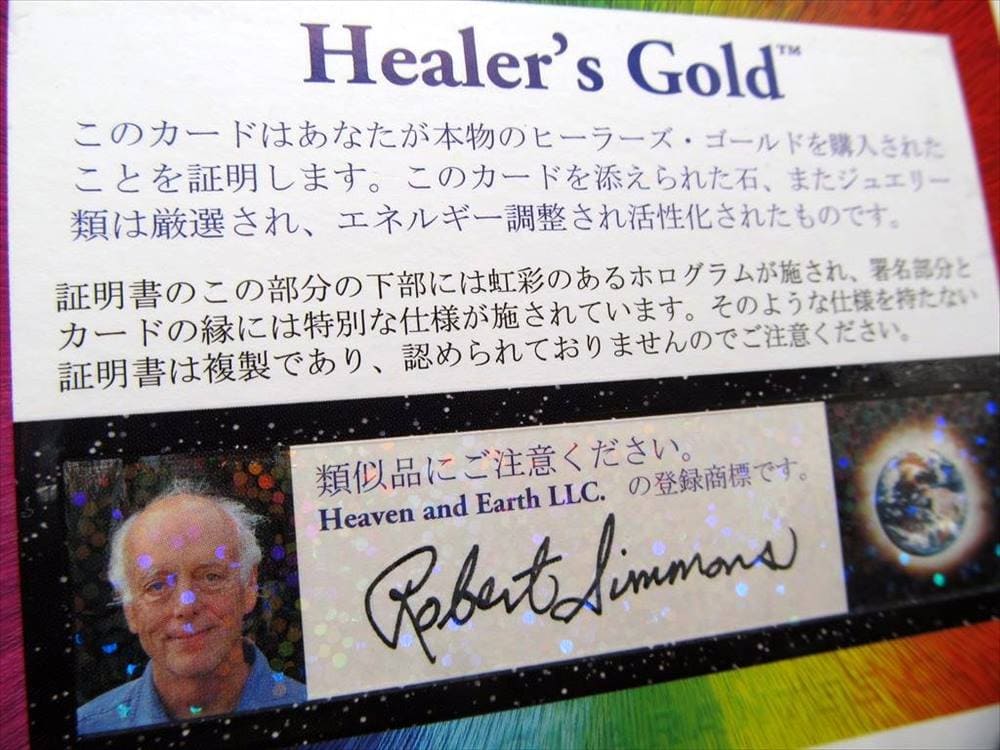 Healer's Gold™
このカードはあなたが本物のヒーラーズ・ゴールドを購入された
ことを証明します。このカードを添えられた石、またジュエリー
類は厳選され、エネルギー調整され活性化されたものです。
証明書のこの部分の下部には虹彩のあるホログラムが施され、署名部分と
カードの縁には特別な仕様が施されています。そのような仕様を持たない
証明書は複製であり、認められておりませんのでご注意ください。
類似品にご注意ください。
Heaven and Earth LLC. の登録商標です。
Robert Simmons